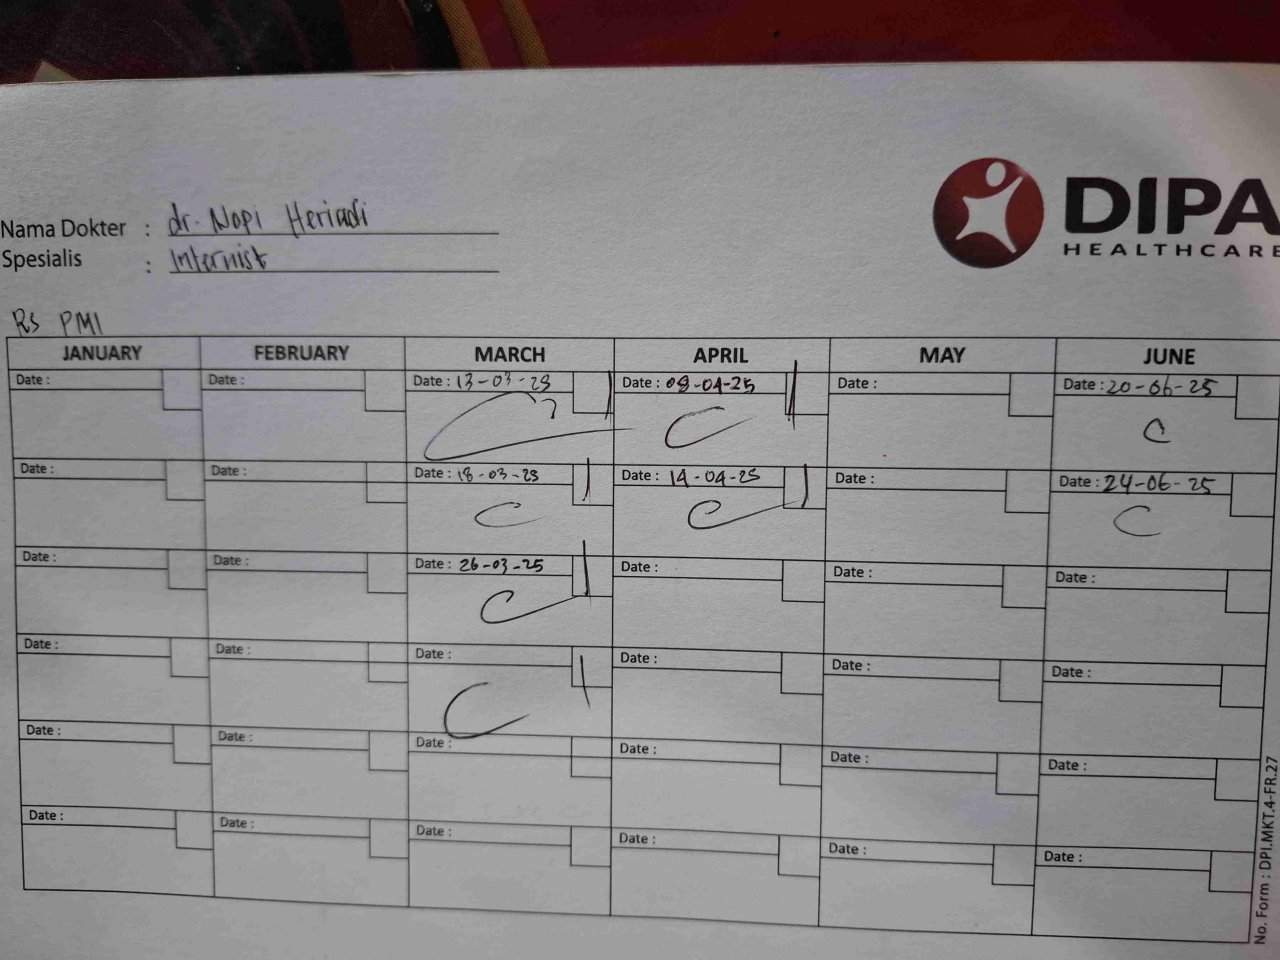 DIPA
HEALTHCARE
Nama Dokter : dr. Nopi Heriadi
Spesialis : Internist
Rs PMI
JANUARY FEBRUARY MARCH APRIL MAY JUNE
Date : Date : Date : 13-03-25 Date : 08-04-25 Date : Date : 20-06-25
Date : Date : Date : 18-03-25 Date : 14-04-25 Date : Date : 24-06-25
Date : Date : Date : 26-03-25 Date : Date : Date :
Date : Date : Date : Date : Date : Date :
Date : Date : Date : Date : Date : Date :
Date : Date : Date : Date : Date : Date :
No. Form : DPI.MKT.4-FR.27